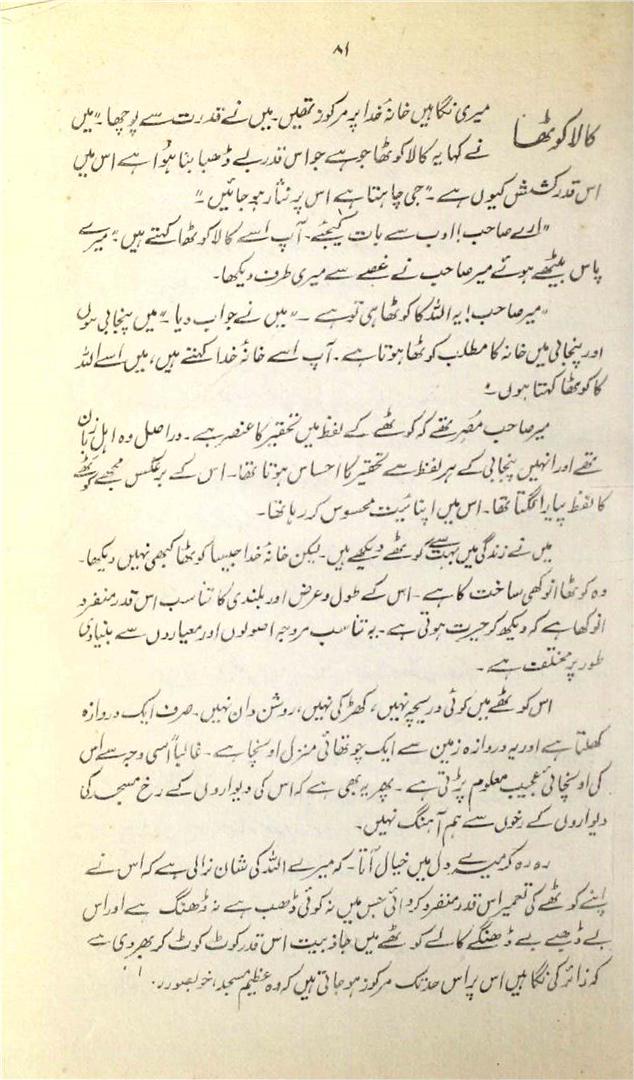 ۸۱
کالا کوٹھا
میری نگاہیں خانۂ خدا پر مرکوز تھیں۔ میں نے قدرت سے پوچھا۔ "میں
نے کہا یہ کالا کوٹھا جو ہے جو اس قدر بے ڈھبا بنا ہوا ہے اس میں
اس قدر کشش کیوں ہے۔ جی چاہتا ہے اس پر نثار ہو جائیں۔"
"ارے صاحب! ادب سے بات کیجئے۔ آپ اسے کالا کوٹھا کہتے ہیں۔" میرے
پاس بیٹھے ہوئے میر صاحب نے غصے سے میری طرف دیکھا۔
"میر صاحب! یہ اللہ کا کوٹھا ہی تو ہے۔" میں نے جواب دیا۔ "میں پنجابی ہوں
اور پنجابی میں خانہ کا مطلب کوٹھا ہوتا ہے۔ آپ اسے خانۂ خدا کہتے ہیں، میں اسے اللہ
کا کوٹھا کہتا ہوں۔"
میر صاحب مُصر تھے کہ کوٹھے کے لفظ میں تحقیر کا عنصر ہے۔ دراصل وہ اہل زبان
تھے اور انہیں پنجابی کے ہر لفظ سے تحقیر کا احساس ہوتا تھا۔ اس کے برعکس مجھے کوٹھے
کا لفظ پیارا لگتا تھا۔ اس میں اپنائیت محسوس کر رہا تھا۔
میں نے زندگی میں بہت سے کوٹھے دیکھے ہیں۔ لیکن خانۂ خدا جیسا کوٹھا کبھی نہیں دیکھا۔
وہ کوٹھا انوکھی ساخت کا ہے۔ اس کے طول و عرض اور بلندی کا تناسب اس قدر منفرد
انوکھا ہے کہ دیکھ کر حیرت ہوتی ہے۔ یہ تناسب مروجہ اصولوں اور معیاروں سے بنیادی
طور پر مختلف ہے۔
اس کوٹھے میں کوئی دریچہ نہیں، کھڑکی نہیں، روشن دان نہیں۔ صرف ایک دروازہ
کھلتا ہے اور یہ دروازہ زمین سے ایک چوتھائی منزل اونچا ہے۔ غالباً اسی وجہ سے اس
کی اونچائی عجیب معلوم پڑتی ہے۔ پھر یہ بھی ہے کہ اس کی دیواروں کے رخ مسجد کی
دیواروں کے رخوں سے ہم آہنگ نہیں۔
رہ رہ کر میرے دل میں خیال آتا۔ کہ میرے اللہ کی شان نرالی ہے کہ اس نے
اپنے کوٹھے کی تعمیر اس قدر منفرد کروائی جس میں نہ کوئی ڈھب ہے نہ ڈھنگ ہے اور اس
بے ڈھبے بے ڈھنگے کالے کوٹھے میں جاذبیت اس قدر کوٹ کوٹ کر بھر دی ہے
کہ زائر کی نگاہیں اس پر اس حد تک مرکوز ہو جاتی ہیں کہ وہ عظیم مسجد، خوبصورت